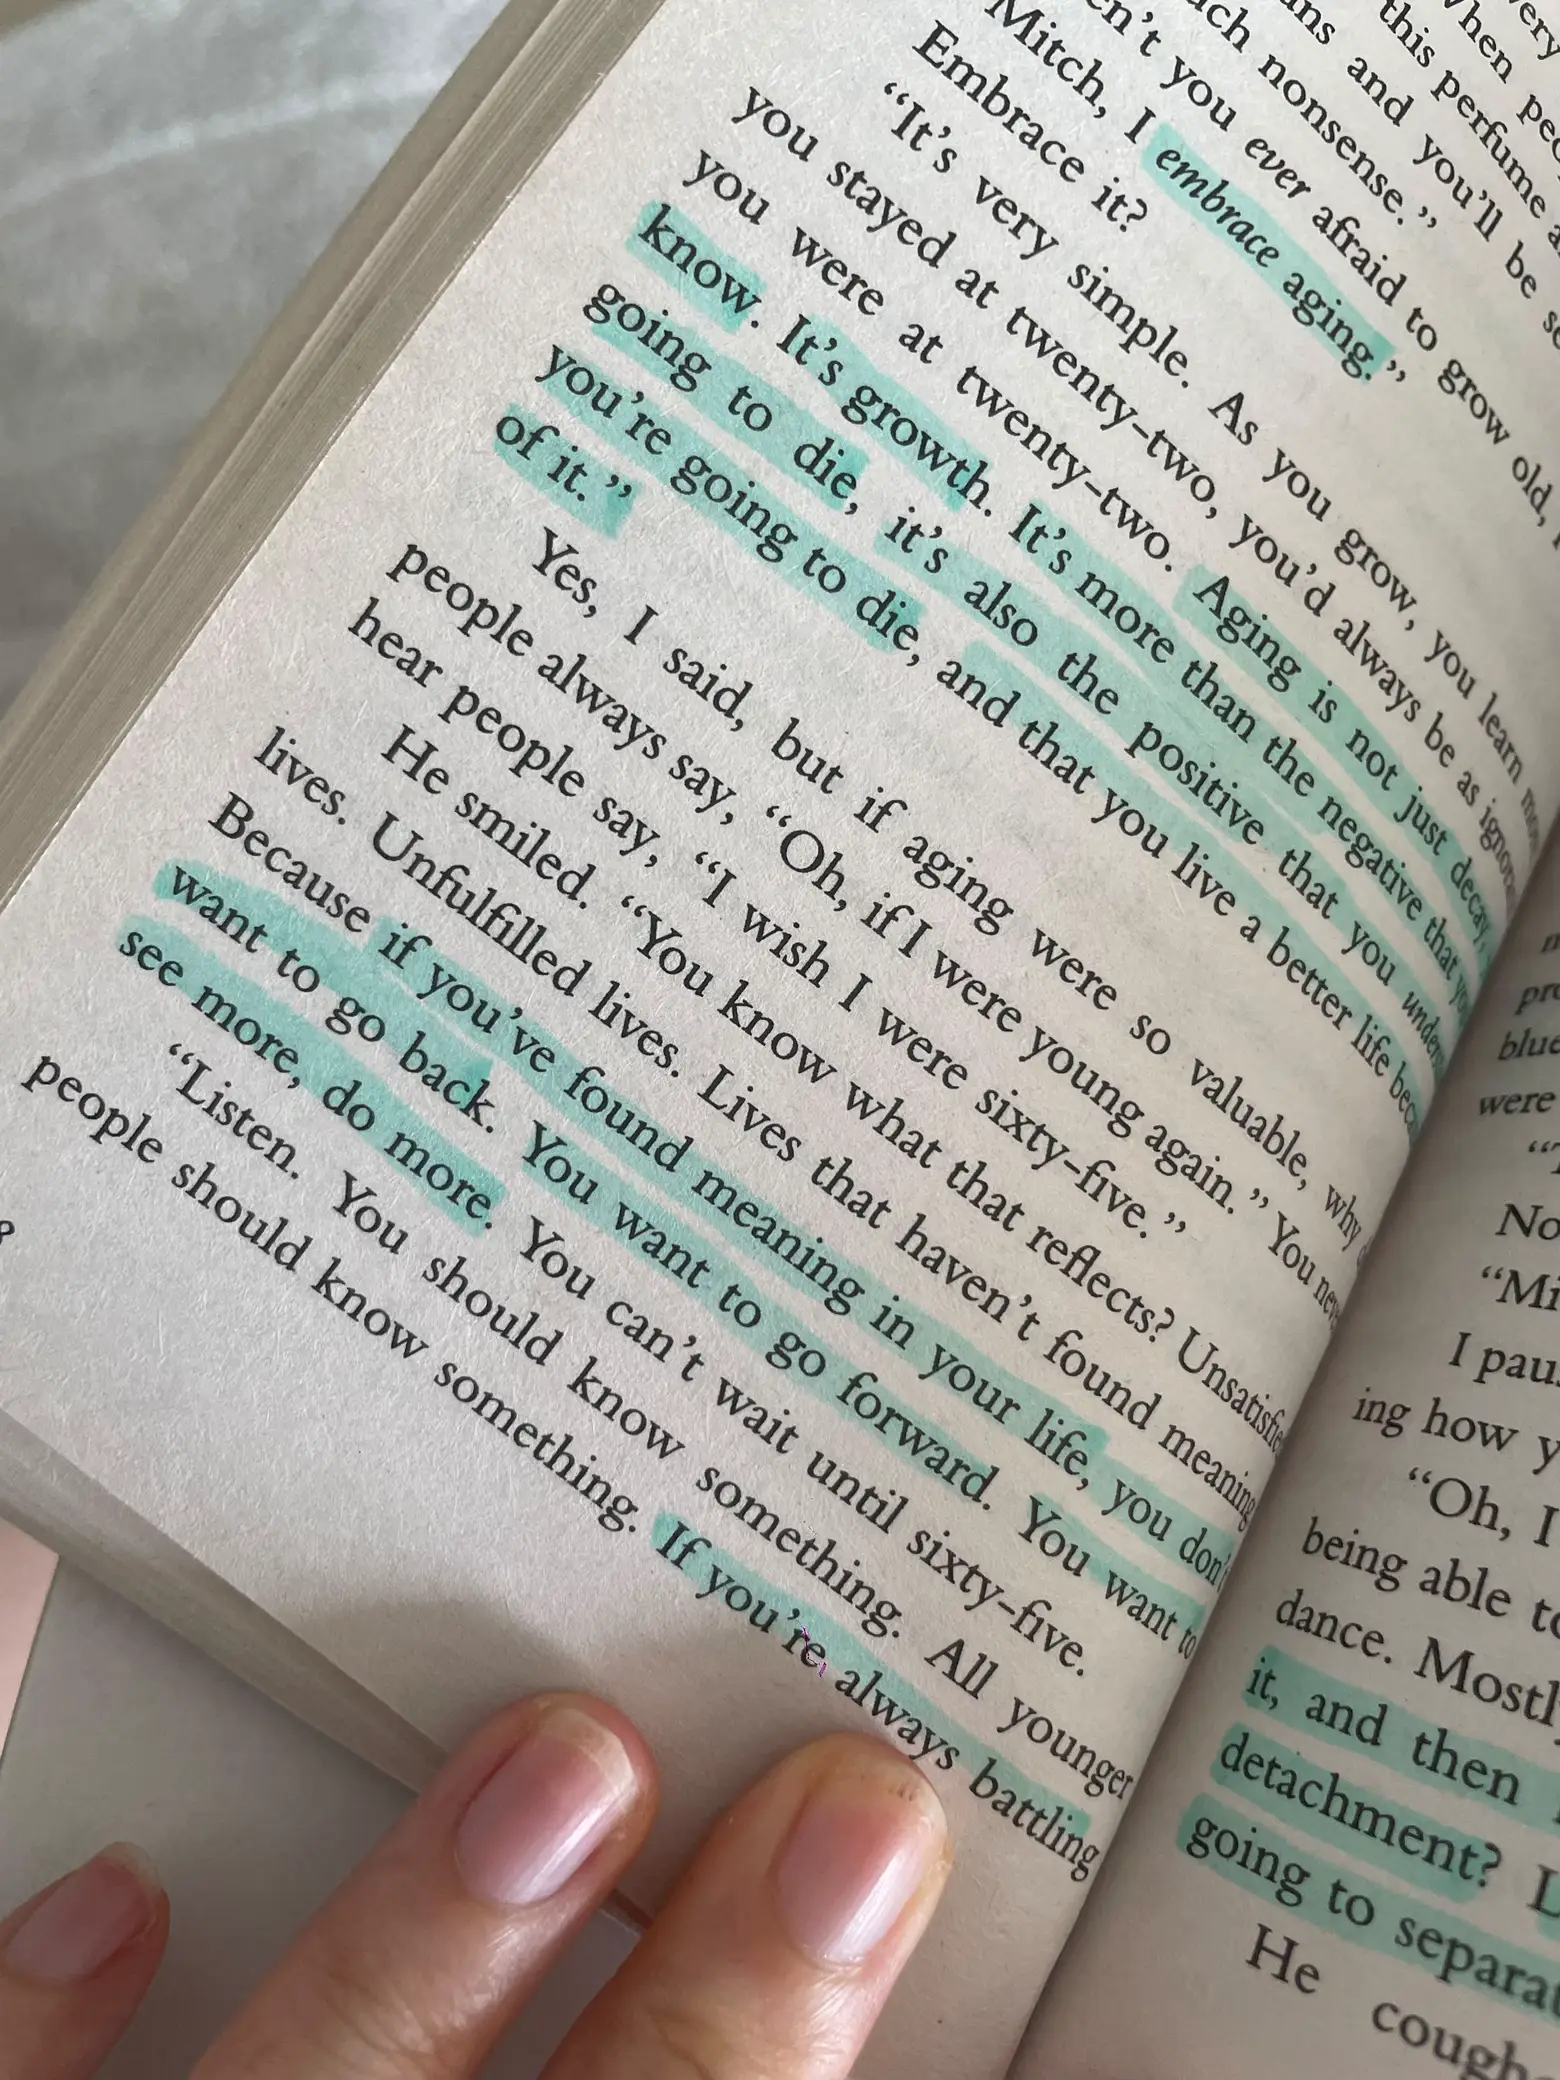 very
When peo
this perfume a
ans and you'll be so
ch nonsense."
en't you ever afraid to grow old, I
Mitch, I embrace aging."
Embrace it?
"It's very simple. As you grow, you learn more
you stayed at twenty-two, you'd always be as ignora
you were at twenty-two. Aging is not just decay,
know. It's growth. It's more than the negative that you
going to die, it's also the positive that you unders
you're going to die, and that you live a better life beca
of it."
Yes, I said, but if aging were so valuable, why
people always say, "Oh, if I were young again." You nev
hear people say, "I wish I were sixty-five."
He smiled. "You know what that reflects? Unsatisfie
lives. Unfulfilled lives. Lives that haven't found meaning
Because if you've found meaning in your life, you don't
want to go back. You want to go forward. You want to
see more, do more. You can't wait until sixty-five.
"Listen. You should know something. All younger
people should know something. If you're always battling
8
pro
blue
were
"T
No
"Mi
I paus
ing how y
"Oh, I
being able to
dance. Mostly
it, and then
detachment? D
going to separat
He cough